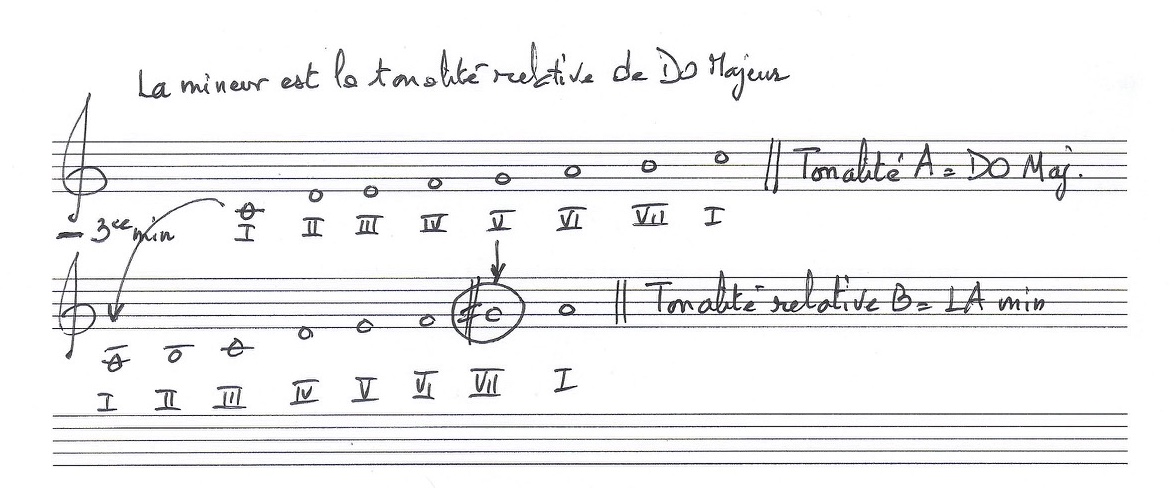 La mineur est la tonalité relative de DO Majeur
Tonalité A = DO Maj.
- 3ce min
I II III IV V VI VII I
Tonalité relative B = LA min
I II III IV V VI VII I